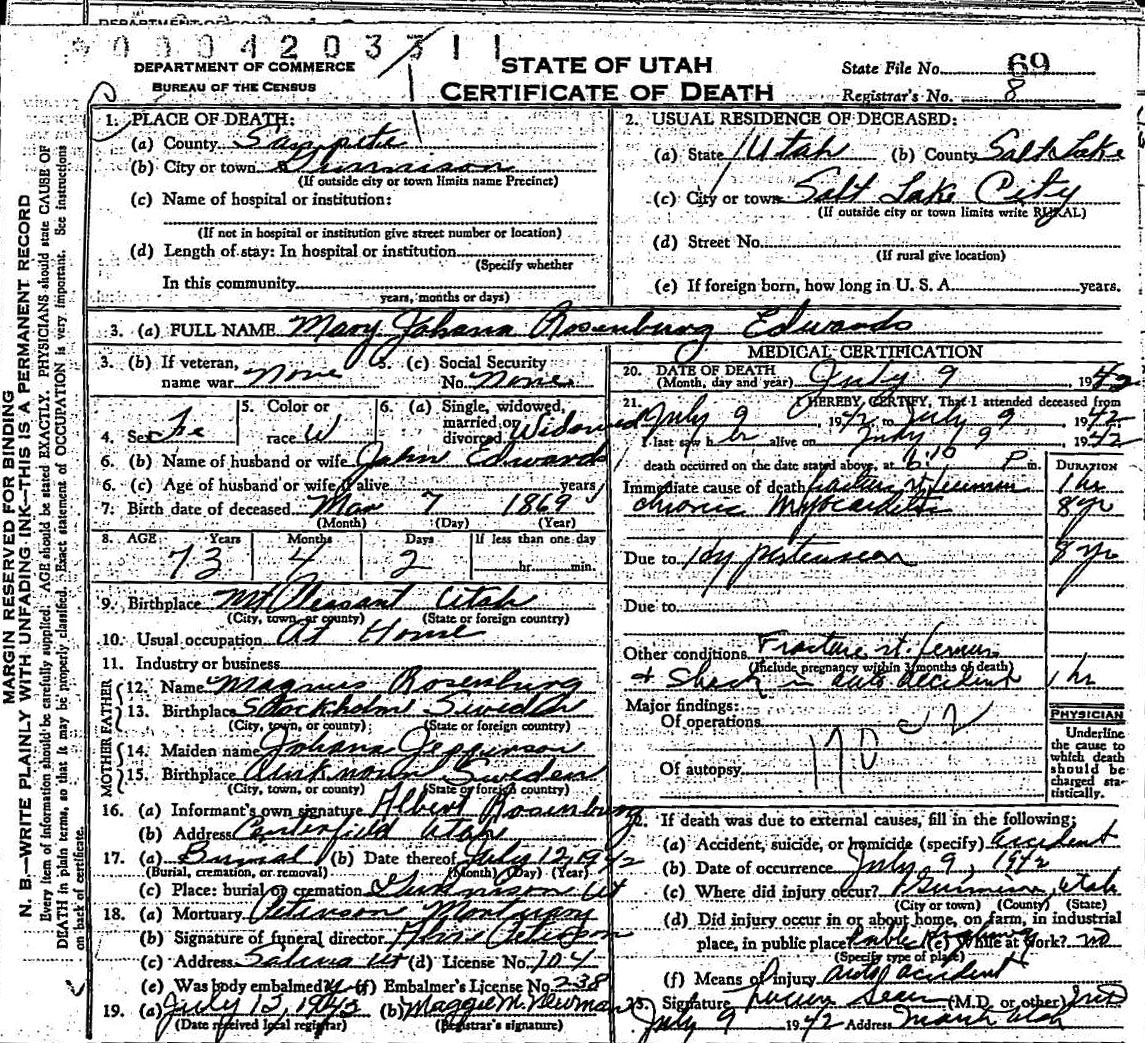 0004203311
DEPARTMENT OF COMMERCE
BUREAU OF THE CENSUS
STATE OF UTAH
CERTIFICATE OF DEATH
State File No. 69
Registrar's No. 8
MARGIN RESERVED FOR BINDING
N. B.—WRITE PLAINLY WITH UNFADING INK—THIS IS A PERMANENT RECORD
Every item of information should be carefully supplied. AGE should be stated EXACTLY. PHYSICIANS should state CAUSE OF
DEATH in plain terms, so that it may be properly classified. Exact statement of OCCUPATION is very important. See instructions
on back of certificate.
1. PLACE OF DEATH:
(a) County Sanpete
(b) City or town Gunnison
(If outside city or town limits name Precinct)
(c) Name of hospital or institution:
(If not in hospital or institution give street number or location)
(d) Length of stay: In hospital or institution
(Specify whether
In this community
years, months or days)
2. USUAL RESIDENCE OF DECEASED:
(a) State Utah (b) County Salt Lake
(c) City or town Salt Lake City
(If outside city or town limits write RURAL)
(d) Street No.
(If rural give location)
(e) If foreign born, how long in U. S. A. years.
3. (a) FULL NAME Mary Johana Rosenburg Edwards
3. (b) If veteran, name war None
3. (c) Social Security No. None
4. Sex Fe
5. Color or race W
6. (a) Single, widowed, married or divorced Widowed
6. (b) Name of husband or wife John Edwards
6. (c) Age of husband or wife if alive years
7. Birth date of deceased Mar 7 1869
(Month) (Day) (Year)
8. AGE Years Months Days If less than one day
73 4 2 hr. min.
9. Birthplace Mt Pleasant Utah
(City, town, or county) (State or foreign country)
10. Usual occupation At Home
11. Industry or business
FATHER
12. Name Magnus Rosenburg
13. Birthplace Stockholm Sweden
(City, town, or county) (State or foreign country)
MOTHER
14. Maiden name Johana Jeppinson
15. Birthplace Unknown Sweden
(City, town, or county) (State or foreign country)
16. (a) Informant's own signature Albert Rosenburg
(b) Address Centerfield Utah
17. (a) Burial (b) Date thereof July 12, 1942
(Burial, cremation, or removal) (Month) (Day) (Year)
(c) Place: burial or cremation Gunnison Ut
18. (a) Mortuary Peterson Mortuary
(b) Signature of funeral director Peterson
(c) Address Salina Ut (d) License No. 104
(e) Was body embalmed (f) Embalmer's License No. 238
19. (a) July 13, 1942 (b) Maggie M. Newman
(Date received local registrar) (Registrar's signature)
MEDICAL CERTIFICATION
20. DATE OF DEATH
(Month, day and year) July 9, 1942
21. I HEREBY CERTIFY, That I attended deceased from
July 9, 1942 to July 9, 1942
I last saw her alive on July 9, 1942
death occurred on the date stated above, at 6:10 P m.
DURATION
Immediate cause of death fracture rt. femur 1 hr
chronic myocarditis 8 yr
Due to Hypertension 8 yr
Due to
Other conditions Fracture rt. femur
(Include pregnancy within 3 months of death)
+ Shock in auto accident 1 hr
Major findings:
Of operations
Of autopsy
170
PHYSICIAN
Underline
the cause to
which death
should be
charged sta-
tistically.
22. If death was due to external causes, fill in the following:
(a) Accident, suicide, or homicide (specify) Accident
(b) Date of occurrence July 9, 1942
(c) Where did injury occur? Gunnison, Utah
(City or town) (County) (State)
(d) Did injury occur in or about home, on farm, in industrial
place, in public place Public Highway (e) While at work? no
(Specify type of place)
(f) Means of injury auto accident
23. Signature (M.D. or other) M.D.
July 9 1942 Address Manti Utah